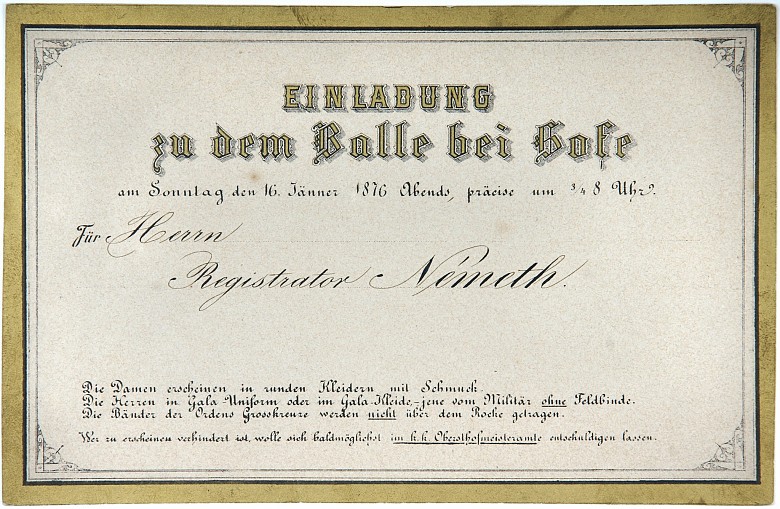 EINLADUNG
zu dem Balle bei Hofe
am Sonntag den 16. Jänner 1876 Abends, präcise um 3/4 8 Uhr.
Für Herrn
Registrator Németh.
Die Damen erscheinen in runden Kleidern mit Schmuck.
Die Herren in Gala Uniform oder im Gala-Kleide,-jene vom Militär ohne Feldbinde.
Die Bänder der Ordens Grosskreuze werden nicht über dem Rocke getragen.
Wer zu erscheinen verhindert ist, wolle sich baldmöglichst im k.k. Obersthofmeisteramte entschuldigen lassen.